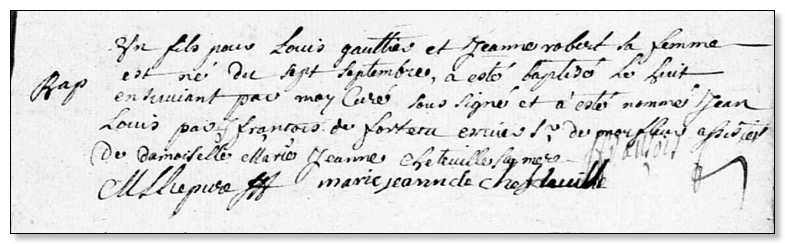 Un fils pour Louis gaultier et Jeanne robert sa femme
est né du sept septembre, a esté baptisé le huit
Bap
ensuivant par moy Curé sous signé et a esté nommé Jean
Louis par françois de forteru ecuier sr. de assisté
de damoiselle Marie Jeanne sa mere
marie jeanne de